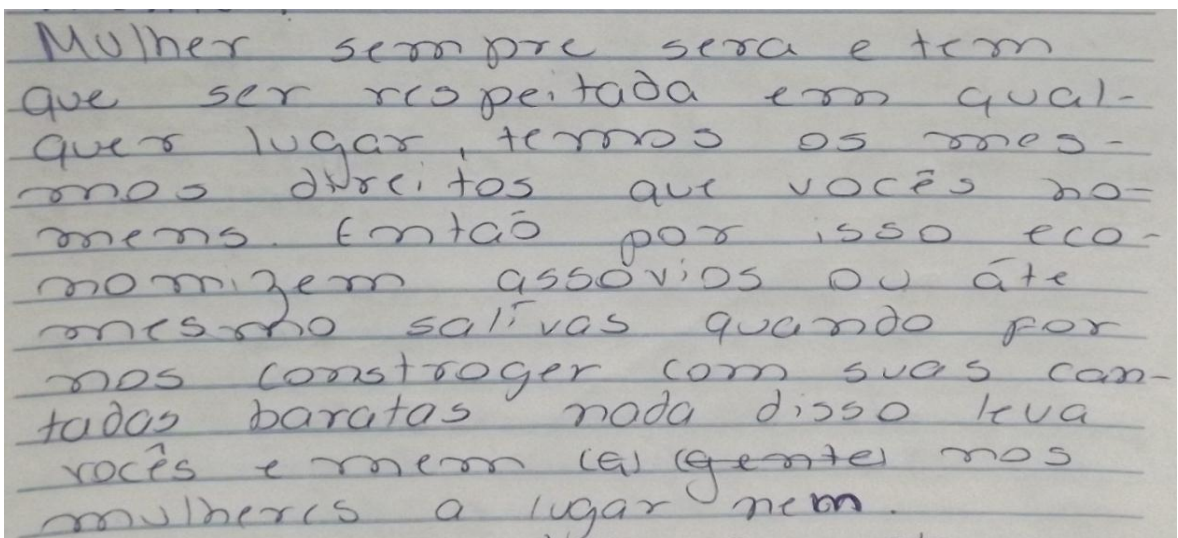 Mulher sempre sera e tem
que ser respeitada em qual-
quer lugar, temos os mes-
mos direitos que vocês ho-
mens. Então por isso eco-
nomizem assóvios ou áte
mesmo salívas quando for
nos constroger com suas can-
tadas baratas nada disso leva
vocês e mem (a) (gente) nos
mulheres a lugar nem.